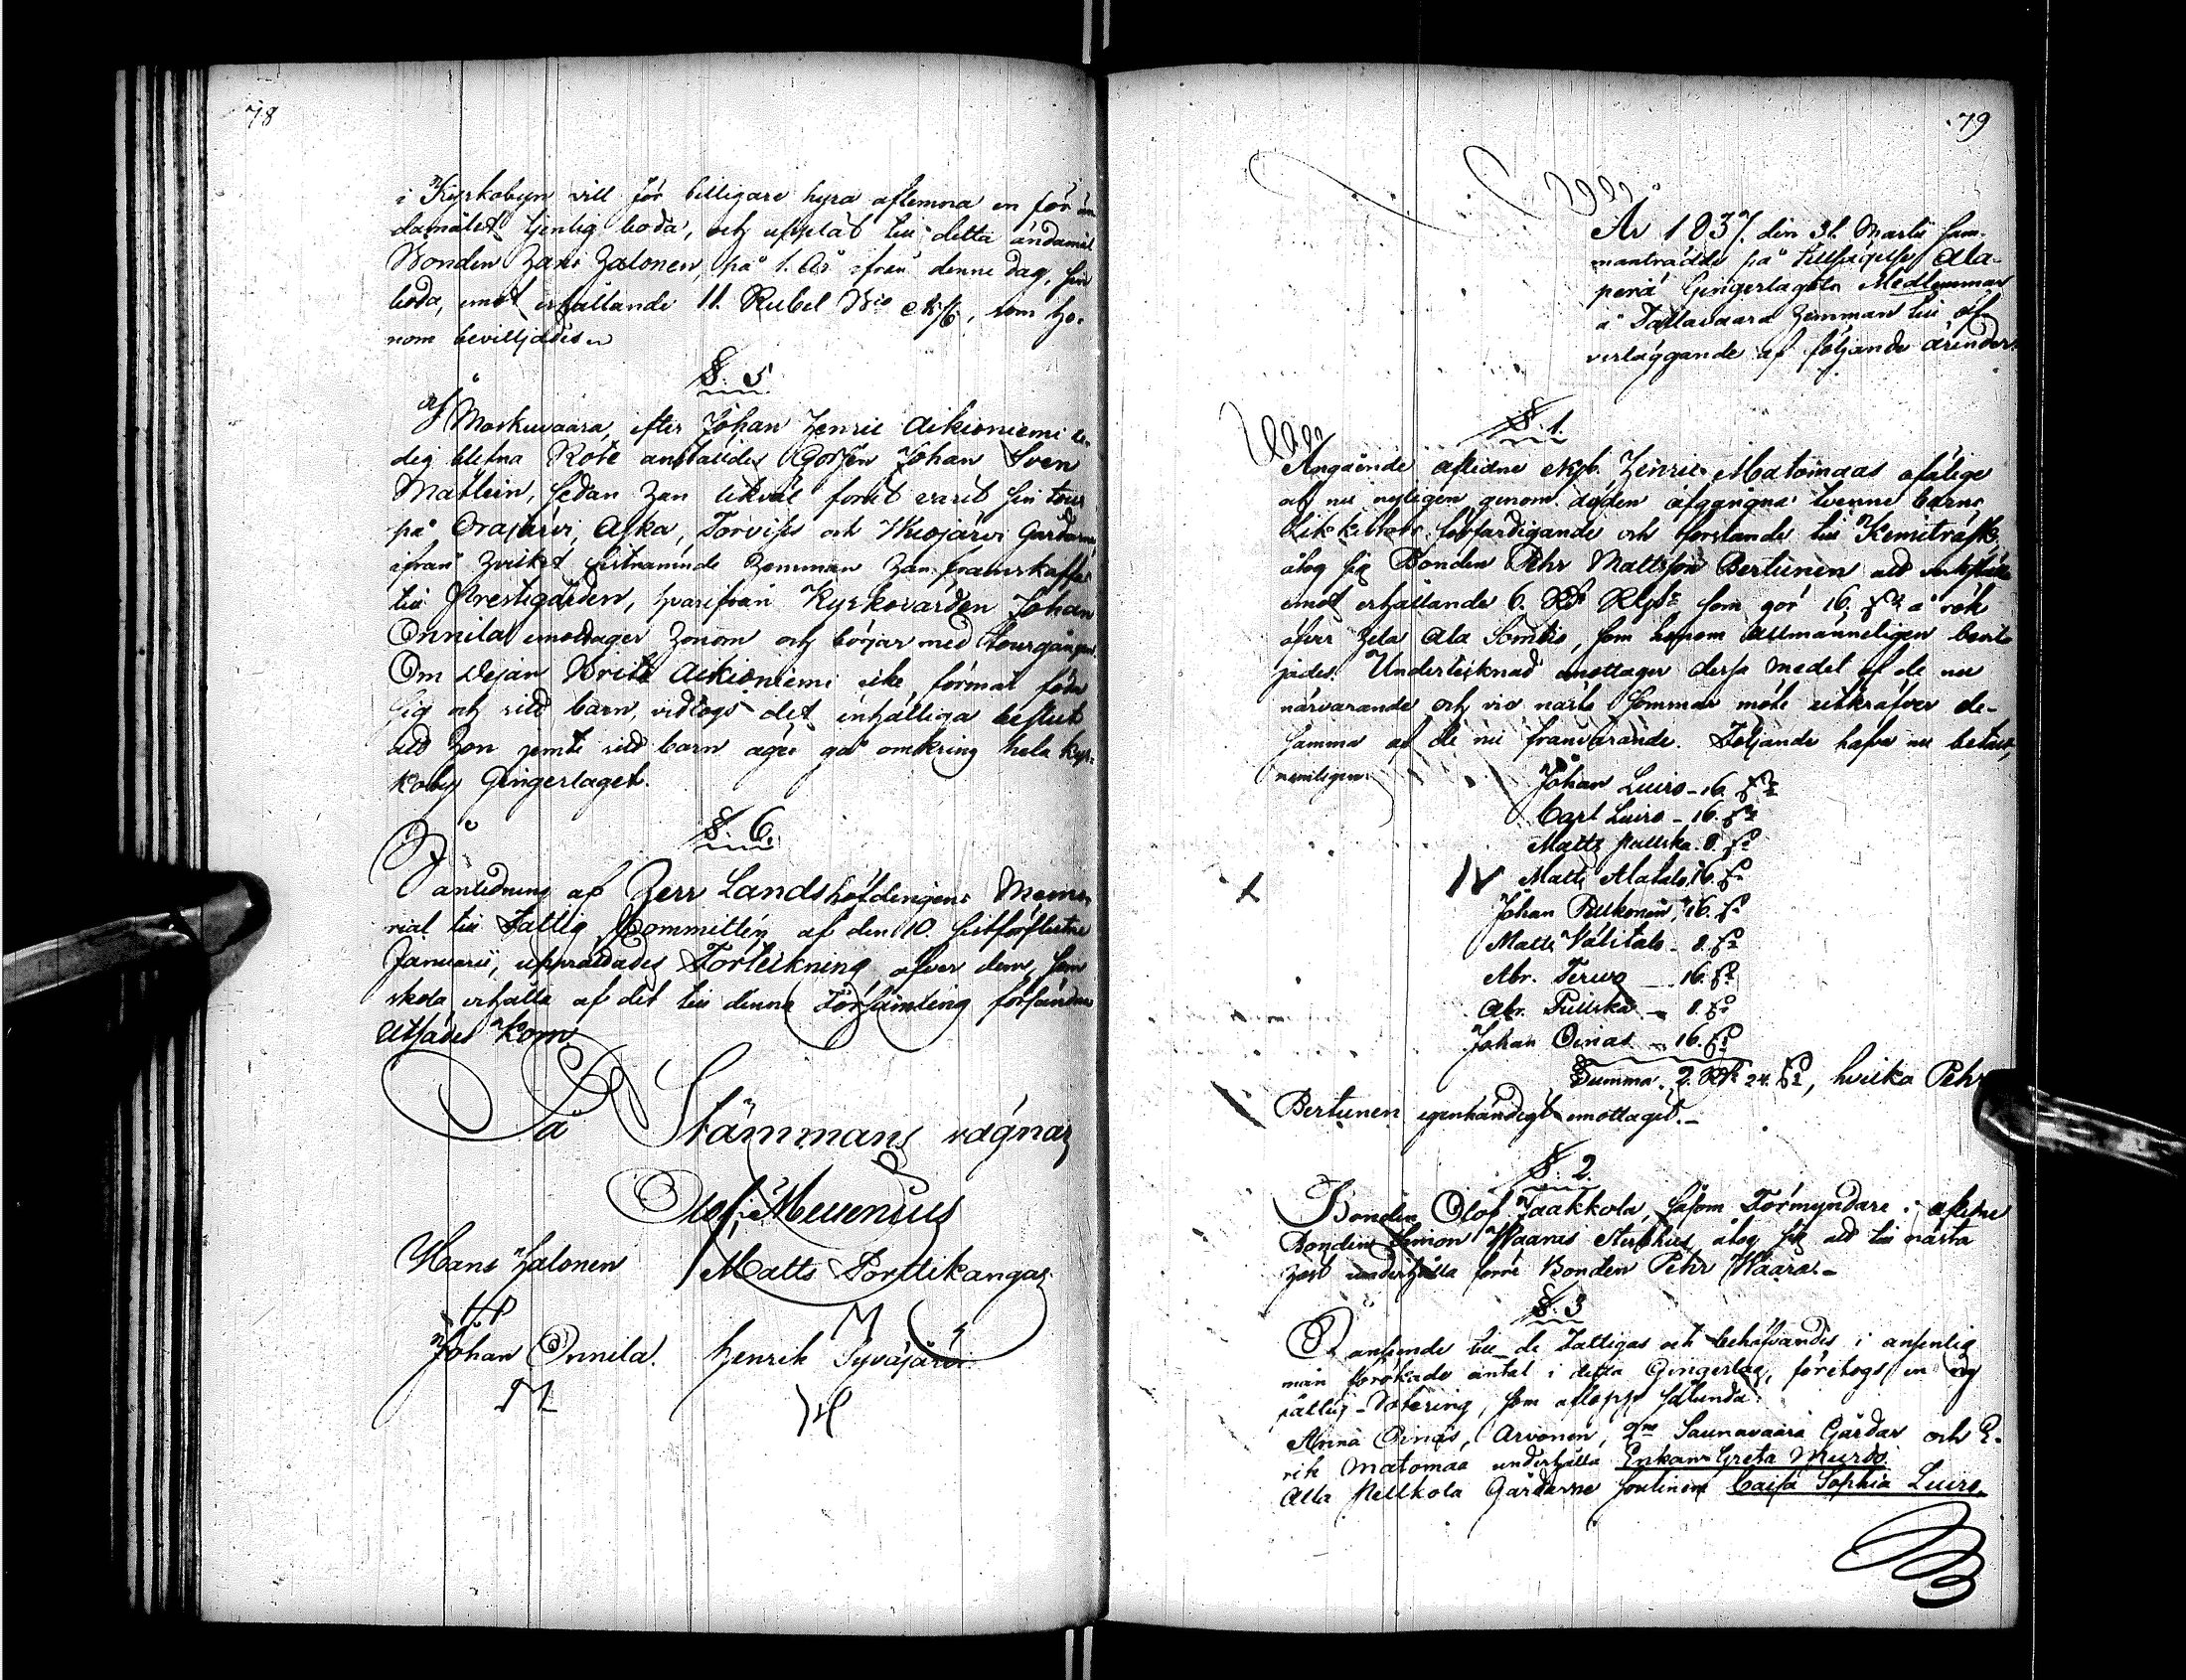 78
i Kyrkobyn vill för billigare hyra aflemna en för än
damålet tjenlig boda, och upplät till detta ändamål
Bonden Hans Halonen, på 1. År ifrån denne dag, sin
boda, emot erhållande 11. Rubel B:co , som ho-
nom beviljades
§. 5.
Moskuvaara, efter Johan Henric Aikioniemi le-
dig blefna Rote anstäldes Gossen Johan Sven
Matlein, sedan han likväl forut varit sin tour
på Orajärvi, Aska, Torviss och Wuojärvi Gårdarne,
ifrån hvilket sistnämnde Hemman han framskaffas
till Prestegården, hvarifrån Kyrkovärden Johan
Onnila emottager honom och börjar med tourgången.
Om Pejan Brita Aikioniemi icke förmår föda
sig och sitt barn, vidtogs det enhälliga beslut
att hon jemte sitt barn äger gå omkring hela Kyr-
koby Gingerlaget.
§. 6.
anledning af Herr Landshöfdingens Memo-
rial till Fattig Committén af den 10. sistförflutne
Januarii, upprättades Förteckning öfver dem, som
skola erhålla af det till denna Församling försändne
Utsädes Korn
På Stämmans vägnar
Olof Mellenius
Hans Halonen Matts Porttikangas
HP M
Johan Onnila. Henrik Syväjärvi
M HP
79
År 1837. den 31. Martii sam-
manträdde på Ala-
perä Gingerlagets Medlemmar
å Tallavaara Hemman till öf-
verläggande af följande ärender.
§. 1.
Angående aflidne Henric Matomaas
och nu nyligen genom döden afgångna tvenne barns
Likkistors förfärdigande och forslande till Kemiträsk,
åtog sig Bonden Pehr Mattsson Bertunen att
emot erhållande 6. som gör 16. å rök
öfver hela Ala Sombio, som honom allmänneligen bevil-
jades. Undertecknad emottager dessa medel af de nu
närvarande och vid nästa Sommar möte utkräfver de-
samma af de nu frånvarande. Följande hafva nu betalt,
nemligen
Johan Luiro - 16.
Carl Luiro - 16.
Matts Pulska. 8.
Matts Alatalo 16.
Johan Pulkonen, 16.
Matts Välitalo - 8.
Abr. Tervo - 16.
Abr. Pulska - 8.
Johan Oinas - 16.
Summa. 2. 24. , hvilka Pehr
Bertunen egenhändigt emottagit. -
§. 2.
Bonden Olof Jaakkola, såsom Förmyndare i aflidne
Bonden Simon Waanis Sterbhus, åtog sig att till nästa
höst underhålla förre Bonden Pehr Waara. -
§. 3
anseende till de Fattigas och behöfvandes i ansenlig
mån förökade antal i detta Gingerlag, företogs en ny
fattig-Rotering, som aflopp sålunda:
Anna Oinas, Arvonen, 2ne Saunavaara Gårdar och E-
rik Matomaa underhålla Enkan Greta Murdo
Alla Pelkola Gårdarne Caisa Sophia Luiro